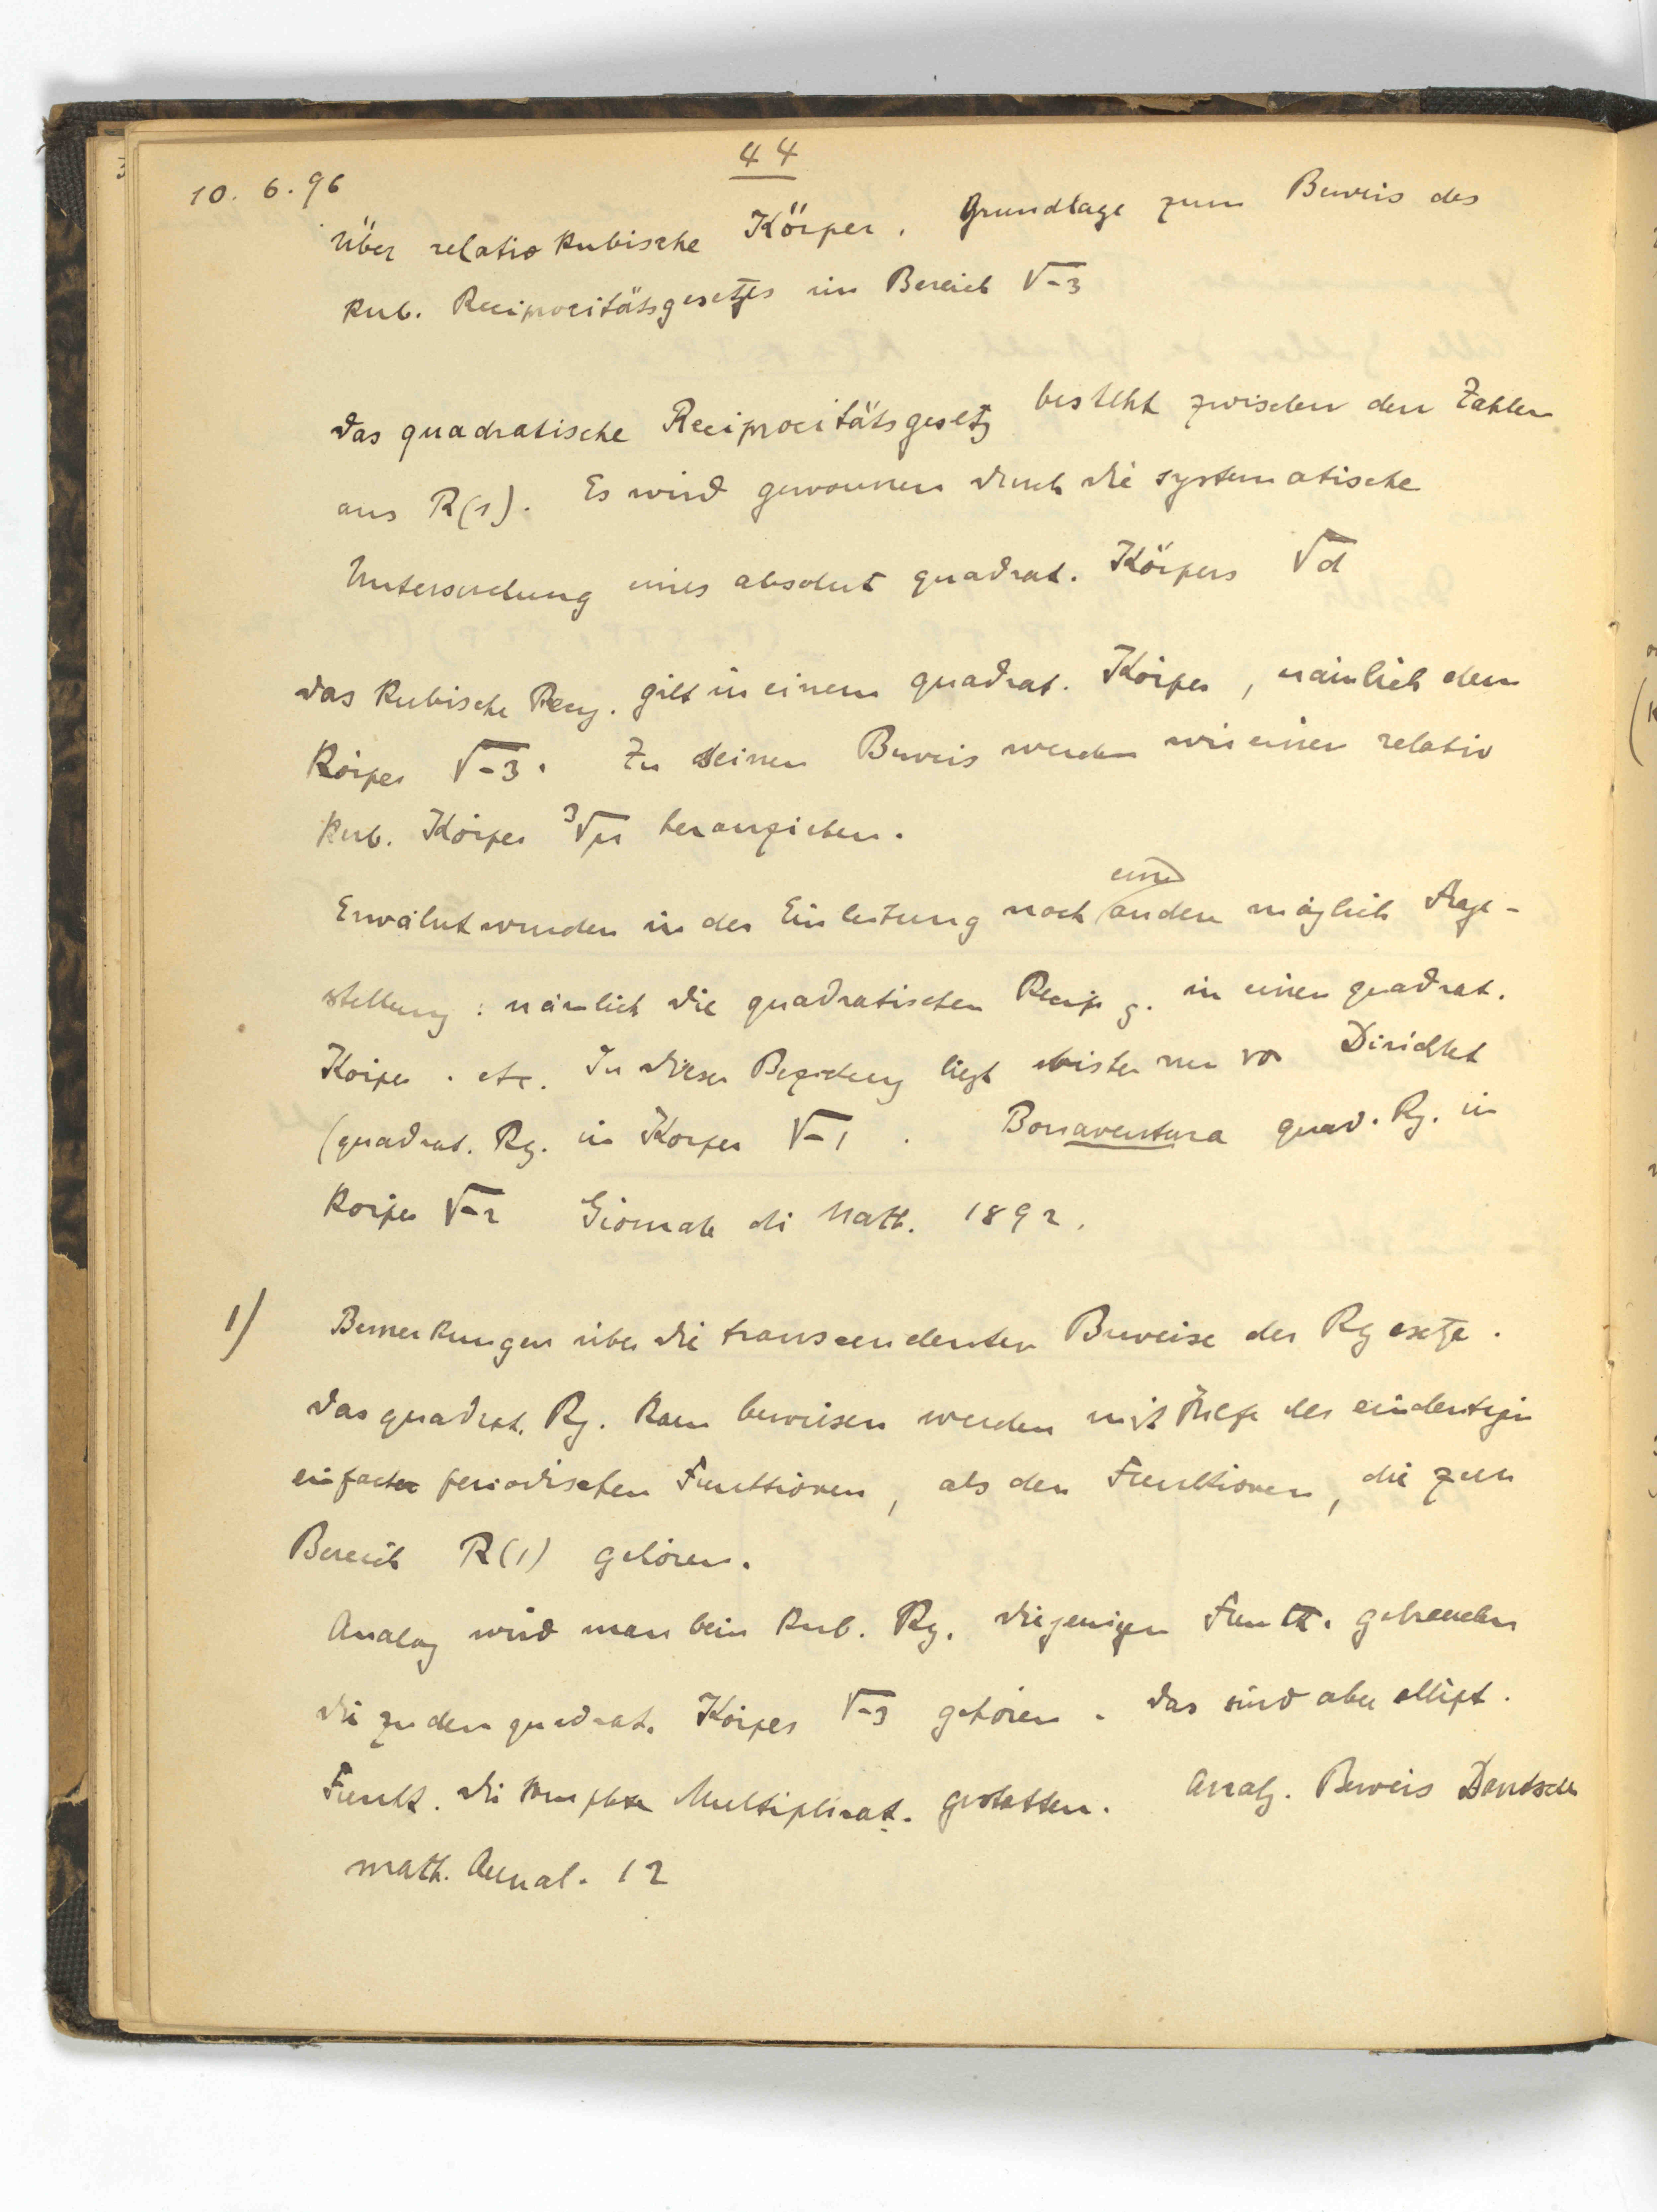 44
10. 6. 96
Über relativ kubische Körper. Grundlage zum Beweis des
kub. Reciprocitätsgesetzes im Bereich √-3
Das quadratische Reciprocitätsgesetz besteht zwischen den Zahlen
aus R(1). Es wird gewonnen durch die systematische
Untersuchung eines absolut quadrat. Körpers √d
Das kubische Recg. gilt in einem quadrat. Körper, nämlich dem
Körper √-3. Zu seinem Beweis werden wir einen relativ
kub. Körper ³√μ heranziehen.
Erwähnt wurden in der Einleitung noch eine andere möglich Frage-
stellung: nämlich die quadratischen Recip g. in einen quadrat.
Körper. etc. In dieser Beziehung liegt bisher nur vor Dirichlet
(quadrat. Rg. im Körper √-1. Bonaventura quad. Rg. in
Körper √-2 Giornale di Math. 1892.
1) Bemerkungen über die transcendenten Beweise der Rgesetze.
Das quadrat. Rg. kann bewiesen werden mit Hilfe der eindeutigen
einfach periodischen Functionen, als den Funktionen, die zum
Bereich R(1) gehören.
Analog wird man beim kub. Rg. diejenigen Funkt. gebrauchen
die zu dem quadrat. Körper √-3 gehören. Das sind aber ellipt.
Funkt. die komplexe Multiplicat. gestatten. Analg. Beweis
math. Annal. 12